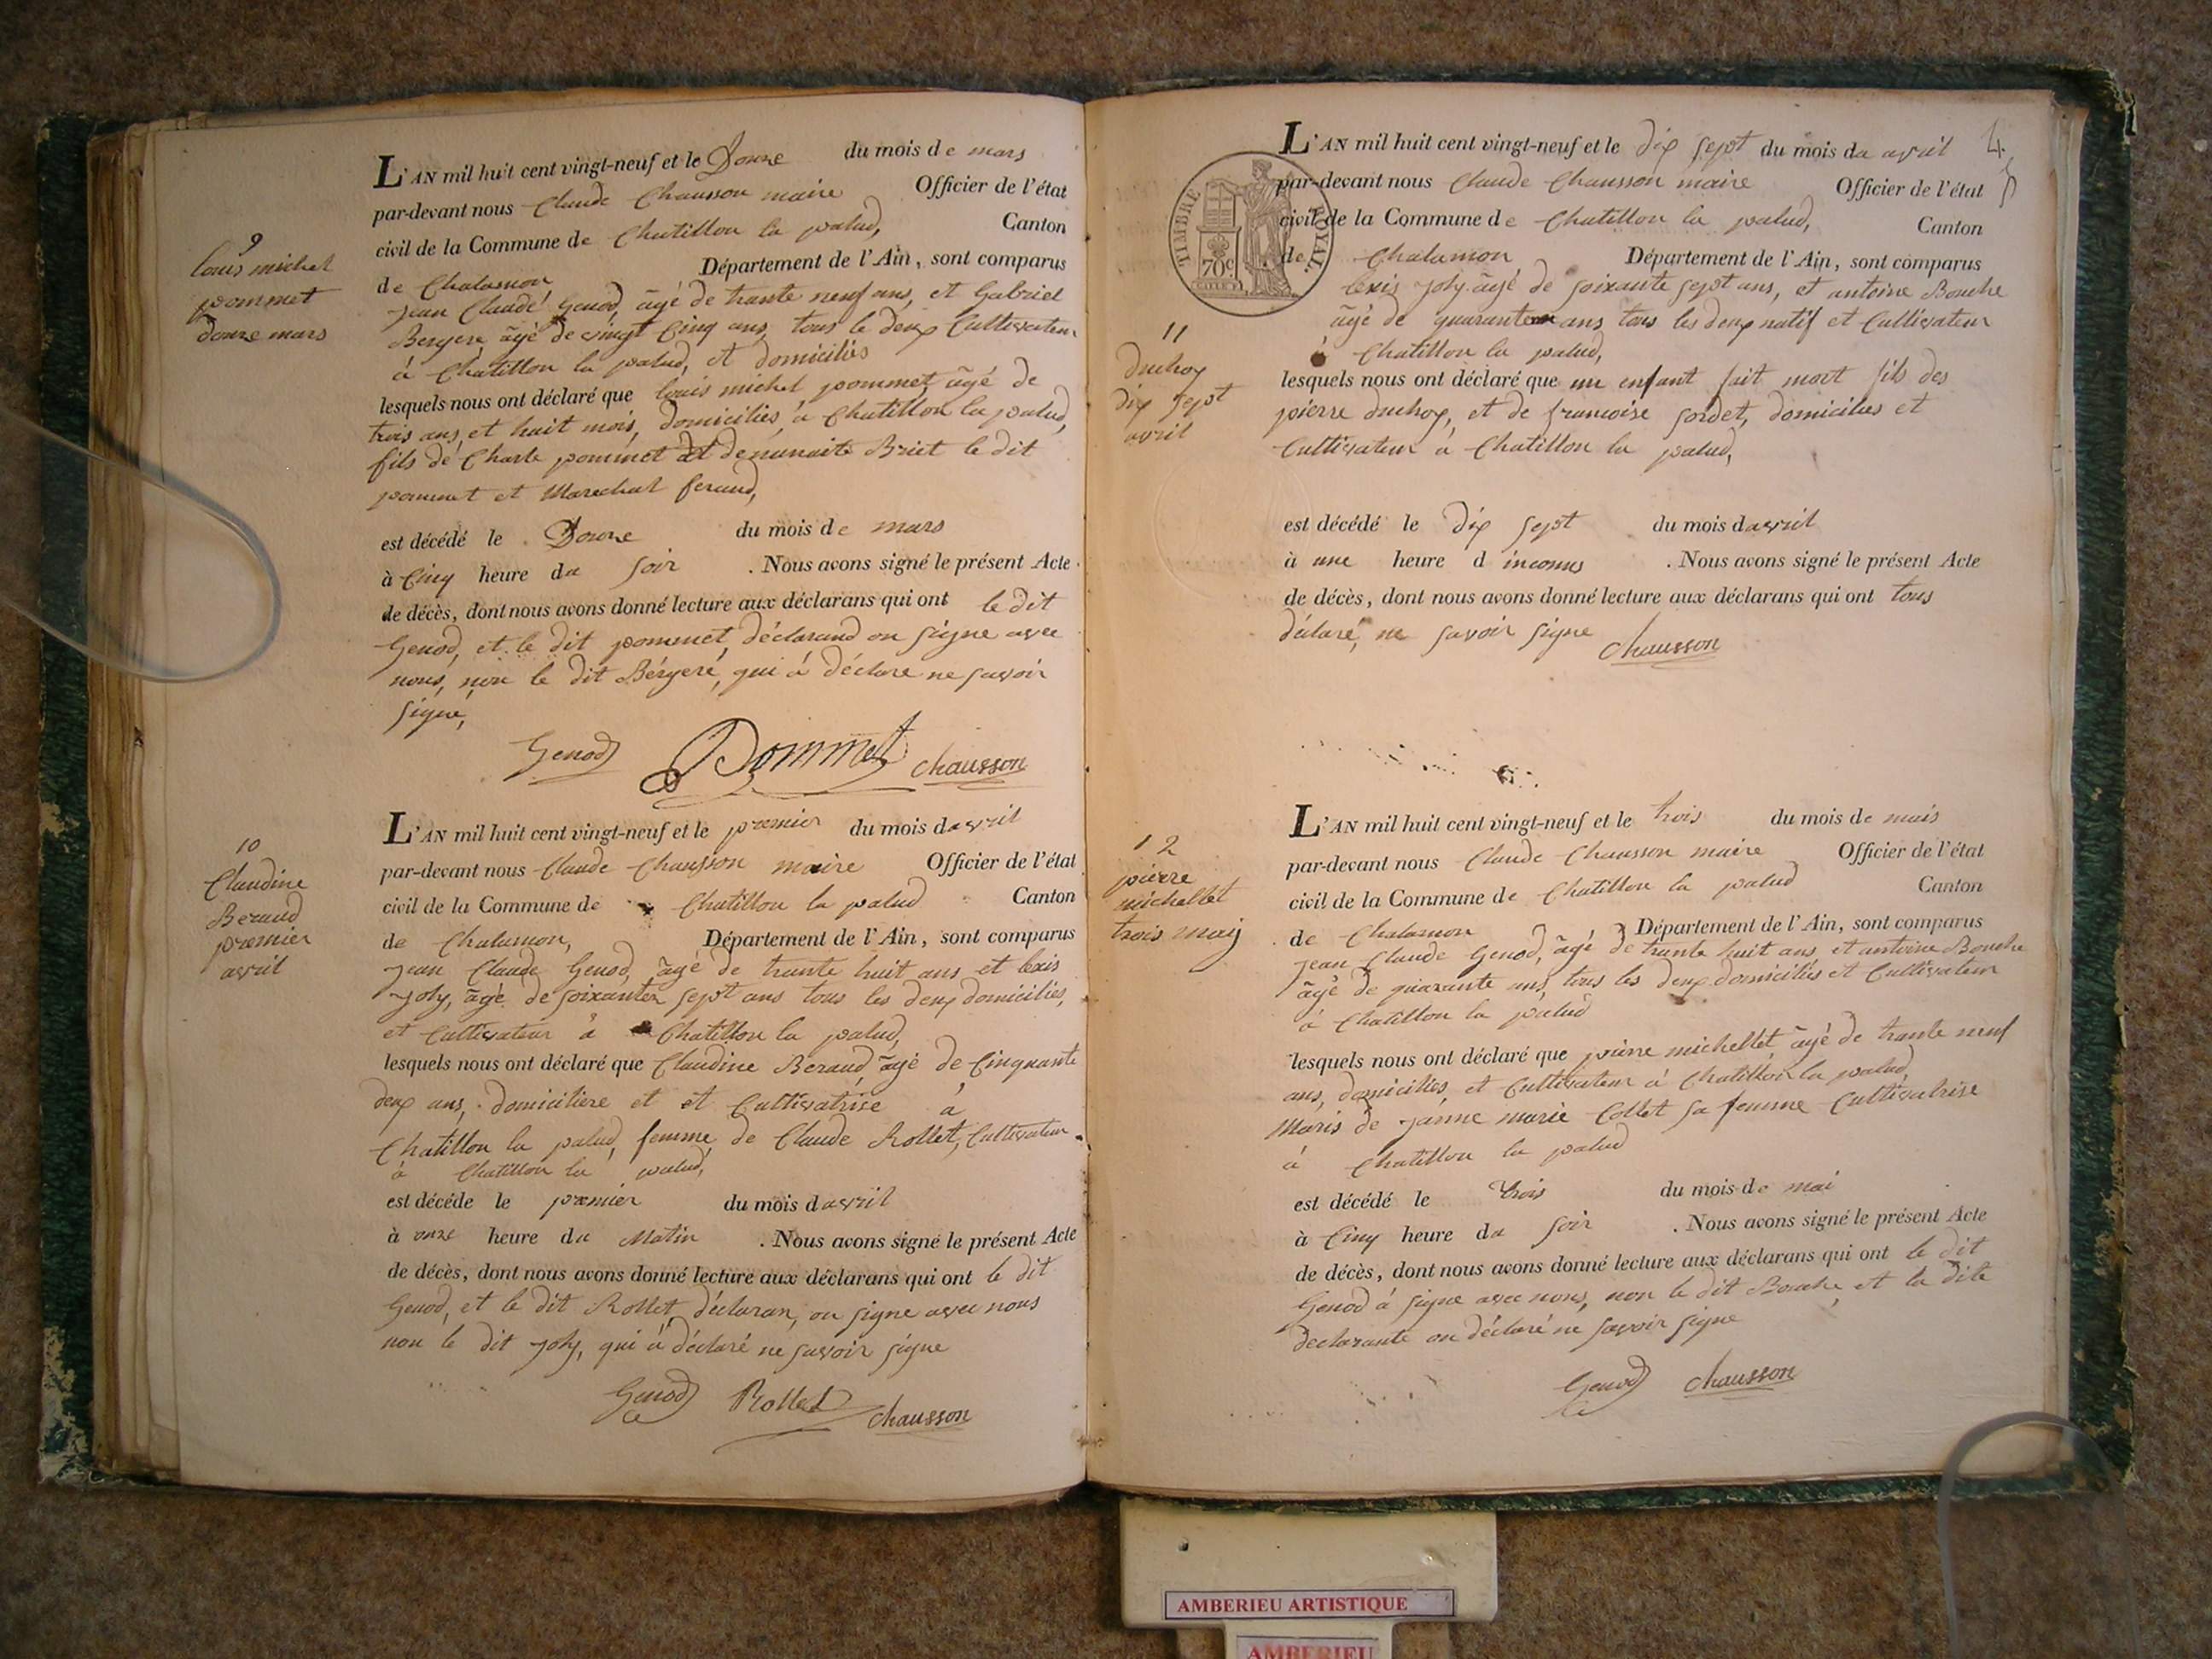 9
louis michel
pommet
douze mars
L'AN mil huit cent vingt-neuf et le Douze du mois de mars
par-devant nous Claude Chausson maire Officier de l'état
civil de la Commune de Chatillon la palud, Canton
de Chalamon Département de l'Ain, sont comparus
jean Claude Genod, âgé de trante neuf ans, et Gabriel
Bergere âgé de vingt Cinq ans, tous le deux Cultivateur
à Chatillon la palud, et domiciliés
lesquels nous ont déclaré que louis michel pommet, âgé de
trois ans, et huit mois, domiciliés, à Chatillon la palud,
fils de Charle pommet et de Briet le dit
pommet et Marechal ferand,
est décédé le Douze du mois de mars
à Cinq heure du soir . Nous avons signé le présent Acte
de décès, dont nous avons donné lecture aux déclarans qui ont le dit
Genod, et le dit pommet, déclarand on signe avec
nous, non le dit Bérgeré, qui à déclare ne savoir
signé,
Genod Pommet Chausson
10
Claudine
Beraud
premier
avril
L'AN mil huit cent vingt-neuf et le premier du mois davril
par-devant nous Claude Chausson maire Officier de l'état
civil de la Commune de Chatillon la palud Canton
de Chalamon, Département de l'Ain, sont comparus
jean Claude Genod, âgé de trante huit ans et lexis
joly, âgé de soixante sept ans tous les deux domicilies,
et Cultivateur à Chatillon la palud,
lesquels nous ont déclaré que Claudine Beraud, âgé de Cinquante
deux ans, domiciliere et et Cultivatrise à
Chatillon la palud, femme de Claude Rollet, Cultivateur
à Chatillon la palud,
est décéde le premier du mois davril
à onze heure du Matin . Nous avons signé le présent Acte
de décès, dont nous avons donné lecture aux déclarans qui ont le dit
Genod, et le dit Rollet, déclaran, on signe avec nous
non le dit joly, qui à déclaré ne savoir signe
Genod Rollet Chausson
4
TIMBRE ROYAL
70c
11
duchoy
dix sept
avril
L'AN mil huit cent vingt-neuf et le dix sept du mois da avril
par-devant nous Claude Chausson maire Officier de l'état
civil de la Commune de Chatillon la palud, Canton
de Chalamon Département de l'Ain, sont comparus
lexis joly âgé de soixante sept ans, et antoine Bouche
âgé de quarante ans tous les deux natif et Cultivateur
à Chatillon la palud,
lesquels nous ont déclaré que un enfant fait mort fils des
pierre duchoy, et de francoise sordet, domicilies et
Cultivateur à Chatillon la palud,
est décédé le dix sept du mois davril
à une heure d inconnus . Nous avons signé le présent Acte
de décès, dont nous avons donné lecture aux déclarans qui ont tous
déclaré, ne savoir signe
Chausson
12
pierre
michellet
trois may
L'AN mil huit cent vingt-neuf et le trois du mois de mais
par-devant nous Claude Chausson maire Officier de l'état
civil de la Commune de Chatillon la palud Canton
de Chalamon Département de l'Ain, sont comparus
jean Claude Genod, âgé de trante huit ans et antoine Bouche
âgé de quarante ans, tous les deux domiciliés et Cultivateur
à Chatillon la palud
lesquels nous ont déclaré que pierre michellet âgé de trante neuf
ans, domicilies, et Cultivateur à Chatillon la palud,
Maris de janne marie Collet sa femme Cultivatrise
à Chatillon la palud
est décédé le trois du mois de mai
à Cinq heure du soir . Nous avons signé le présent Acte
de décès, dont nous avons donné lecture aux déclarans qui ont le dit
Genod à signe avec nous, non le dit Bouche, et la dite
declarante on déclaré ne savoir signe
Genod Chausson
AMBERIEU ARTISTIQUE
AMBERIEU